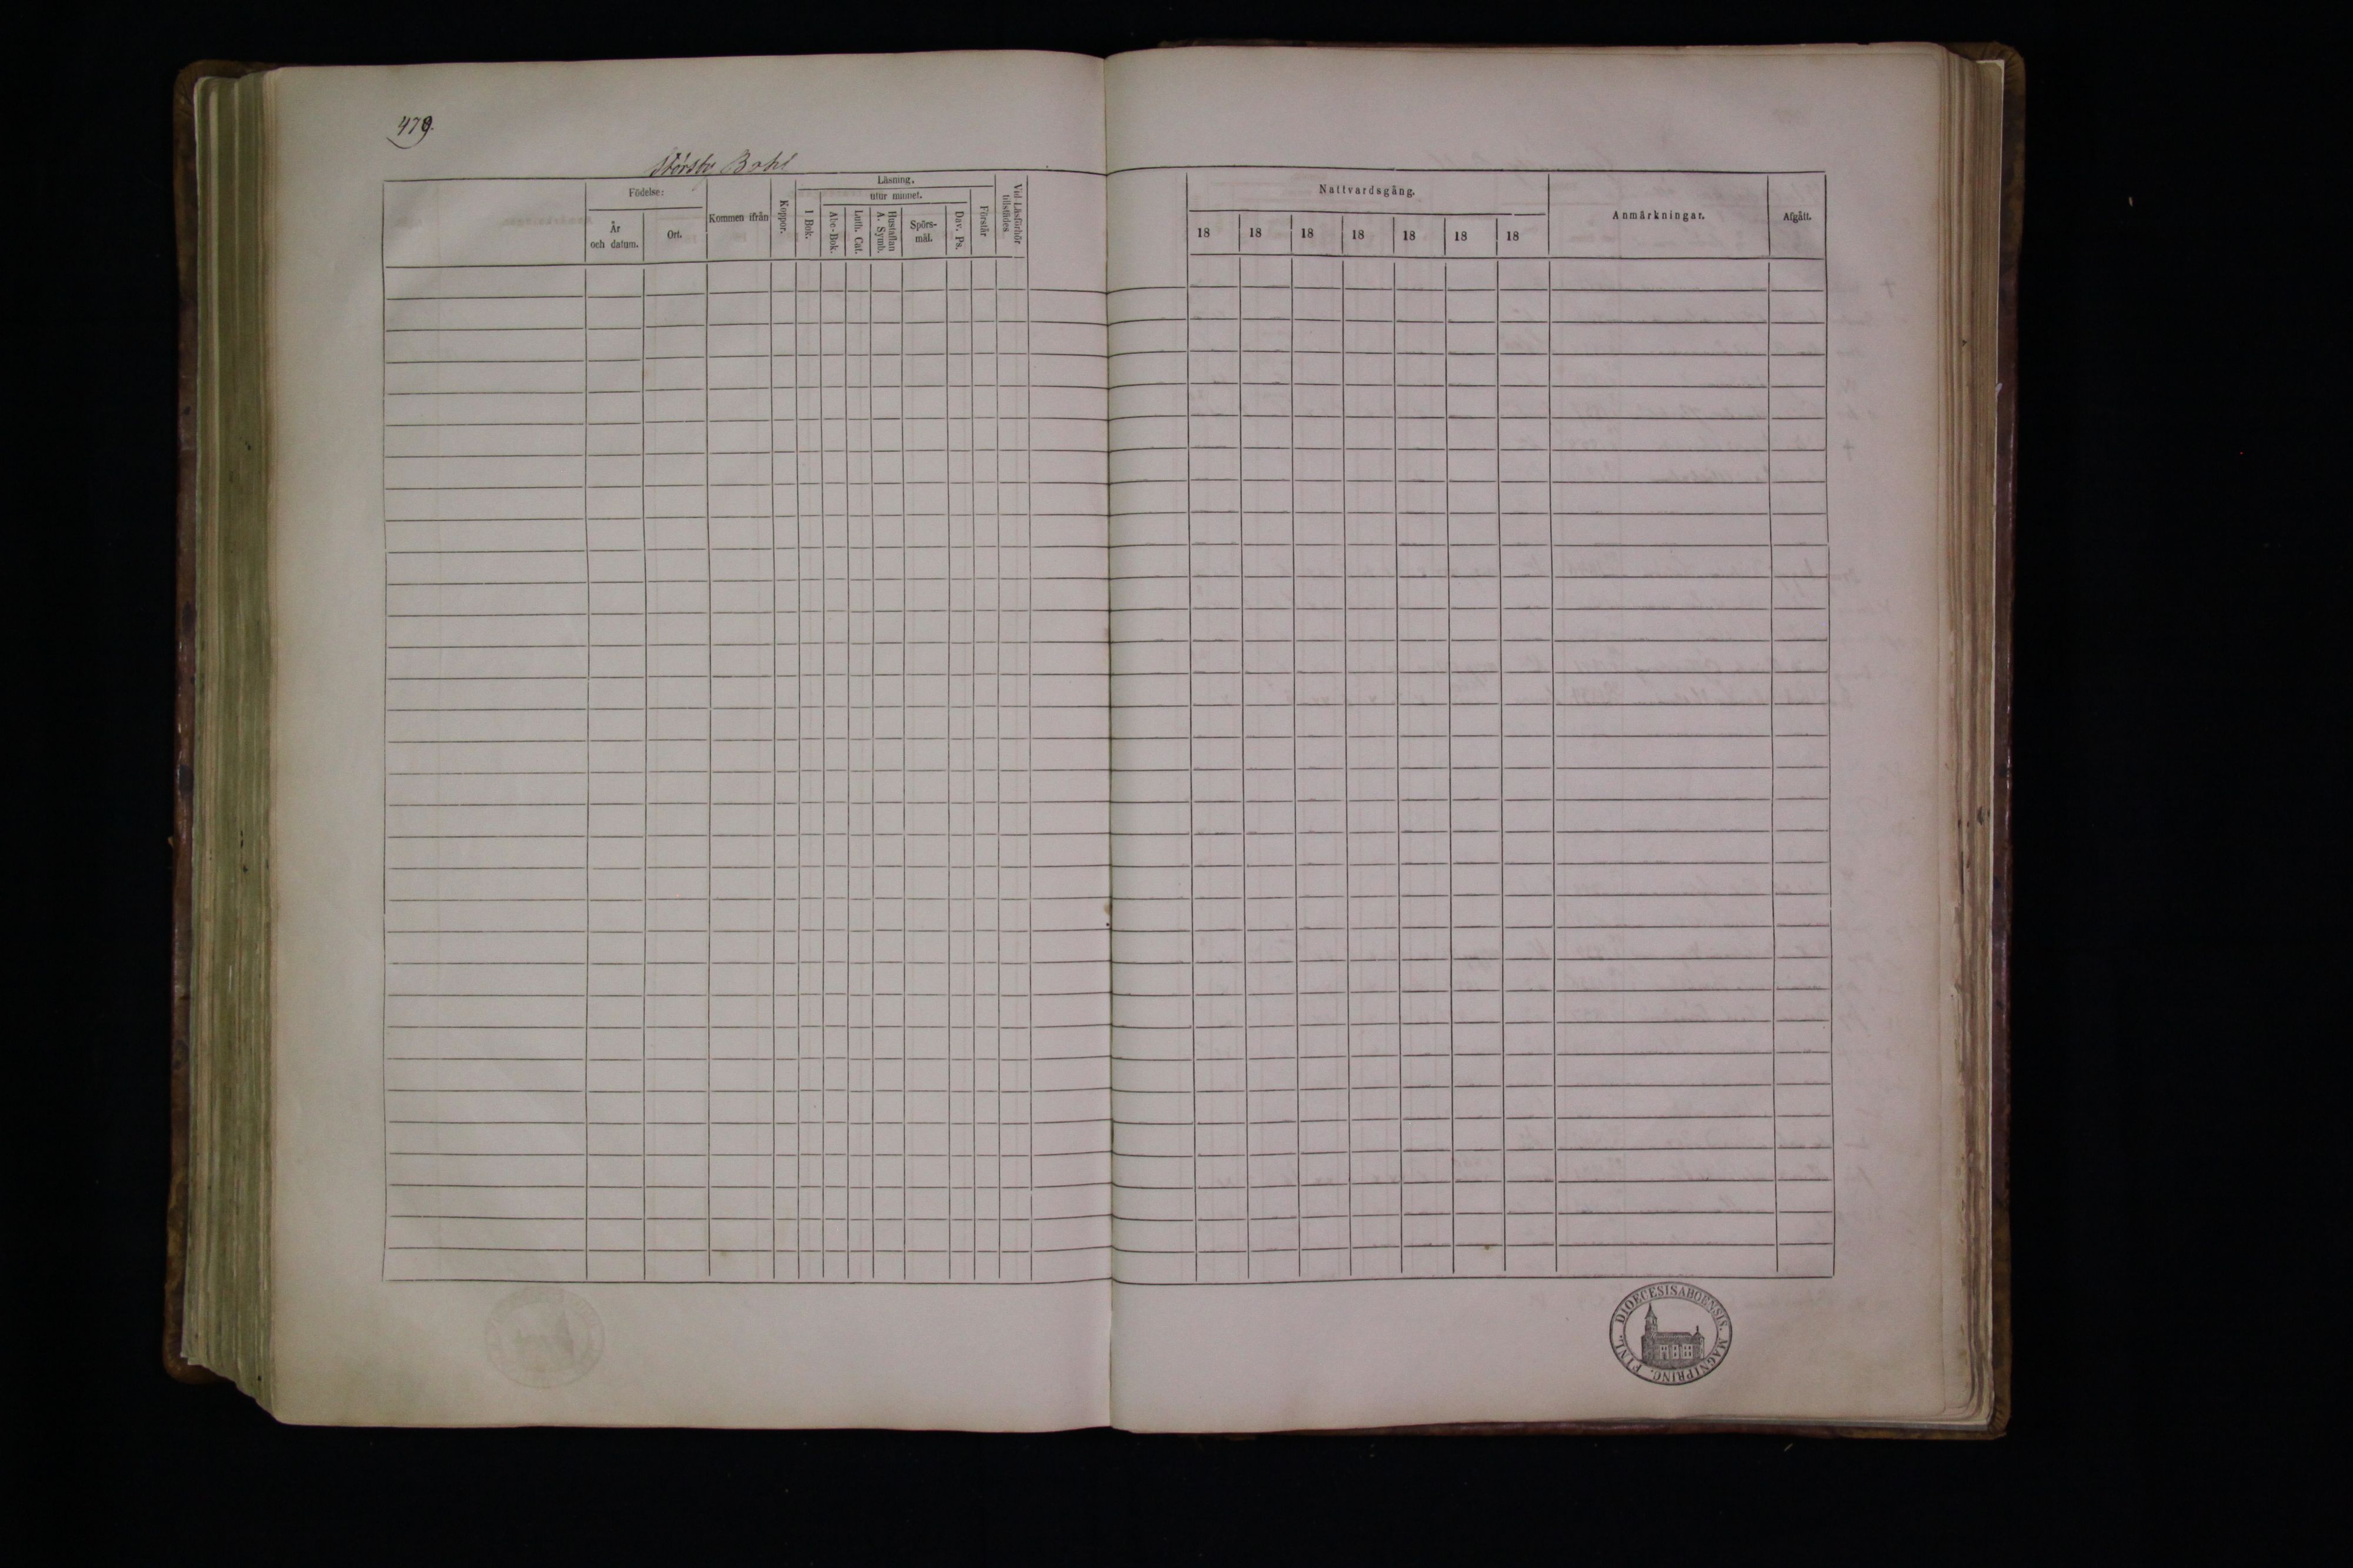 479.
Störsby Bohl
Födelse:
År
och datum.
Ort.
Kommen ifrån
Koppor.
Läsning.
utur minnet.
I Bok.
Abc-Bok.
Luth. Cat.
Hustaflan
A. Symb.
Spörs-
mål.
Dav. Ps.
Förstår
Vid Läsförhör
tillstädes
Nattvardsgång.
18 18 18 18 18 18 18
Anmärkningar.
Afgått.
FINL. DIOECESIS ABOENSIS. MAGNI PRINC.